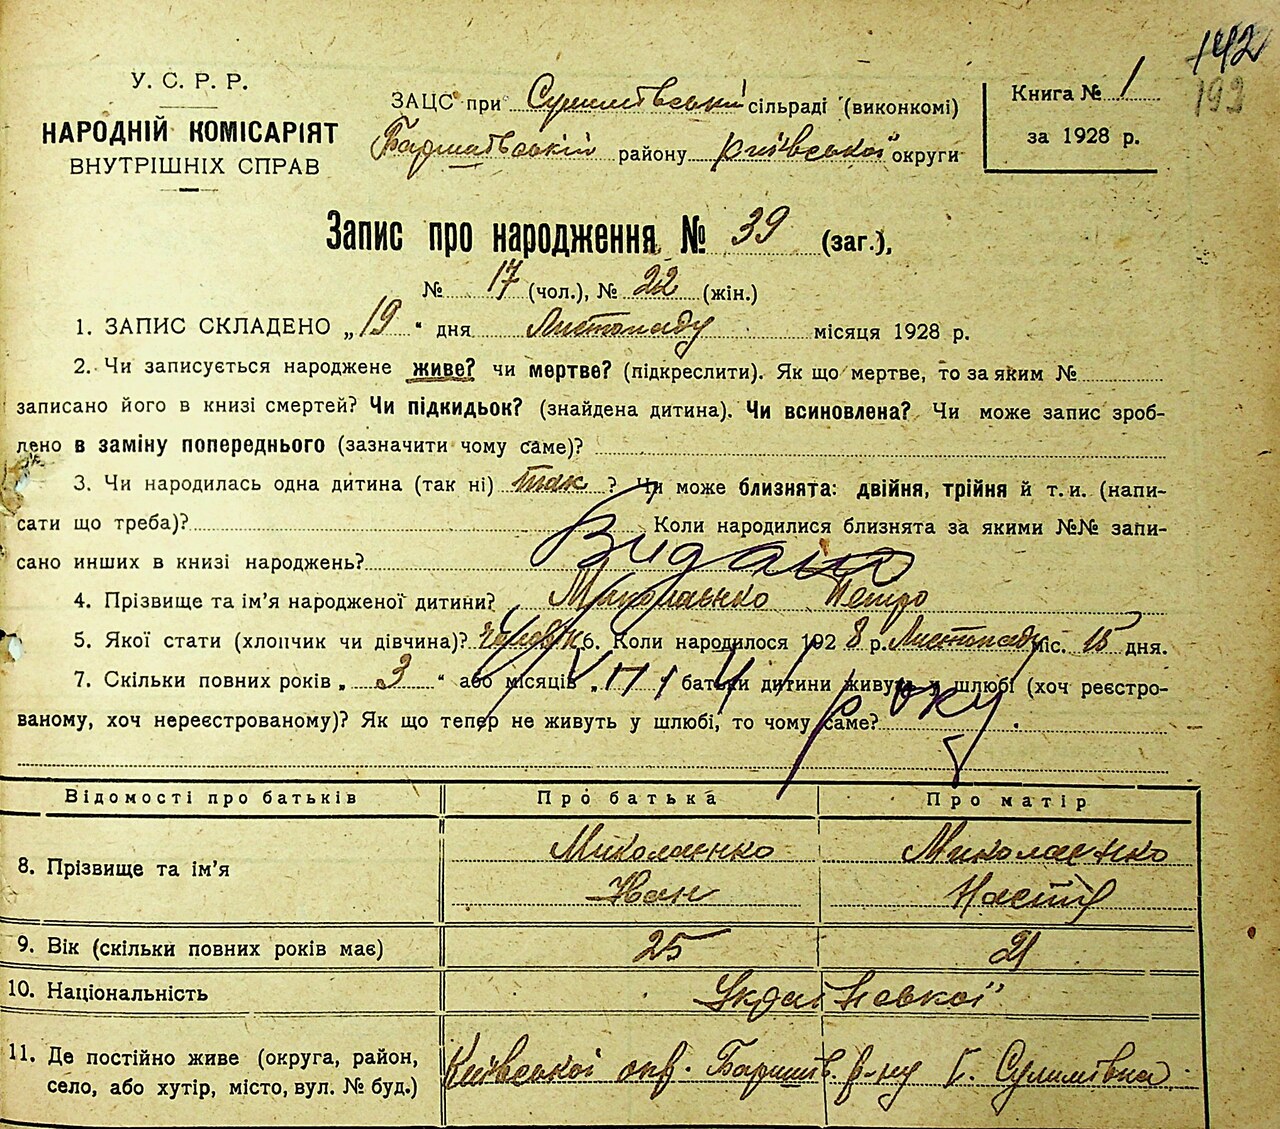 142
192
У. С. Р. Р.
НАРОДНІЙ КОМІСАРІЯТ
ВНУТРІШНІХ СПРАВ
ЗАЦС при Сулимівській сільраді (виконкомі)
Баришівській району Київської округи
Книга № 1
за 1928 р.
Запис про народження № 39 (заг.),
№ 17 (чол.), № 22 (жін.)
1. ЗАПИС СКЛАДЕНО „19“ дня Листопаду місяця 1928 р.
2. Чи записується народжене живе? чи мертве? (підкреслити). Як що мертве, то за яким №
записано його в книзі смертей? Чи підкидьок? (знайдена дитина). Чи всиновлена? Чи може запис зроб-
лено в заміну попереднього (зазначити чому саме)?
3. Чи народилась одна дитина (так ні) так ? Чи може близнята: двійня, трійня й т. и. (напи-
сати що треба)? Коли народилися близнята за якими №№ запи-
сано инших в книзі народжень?
Видано
4. Прізвище та ім'я народженої дитини? Миколаєнко Петро
5. Якої стати (хлопчик чи дівчина)? 6. Коли народилося 1928 р. Листопаду міс. 15 дня.
7. Скільки повних років „3“ або місяців „ батьки дитини живуть у шлюбі (хоч реєстро-
року
ваному, хоч нереєстрованому)? Як що тепер не живуть у шлюбі, то чому саме?
Відомості про батьків Про батька Про матір
8. Прізвище та ім'я Миколаєнко Іван Миколаєнко Настя
9. Вік (скільки повних років має) 25 21
10. Національність Української
11. Де постійно живе (округа, район, село, або хутір, місто, вул. № буд.) Київської окр. Баришів. р-ну С. Сулимівка